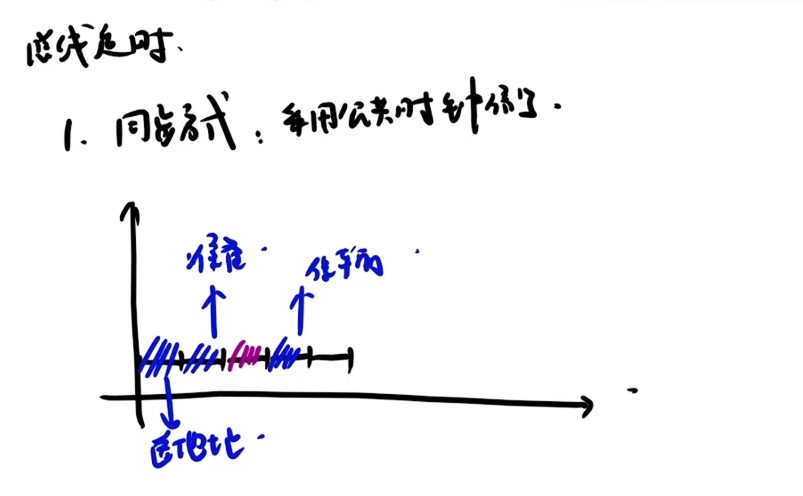 总线定时.
1. 同步方式：采用公共时钟信号.
准备
送地址